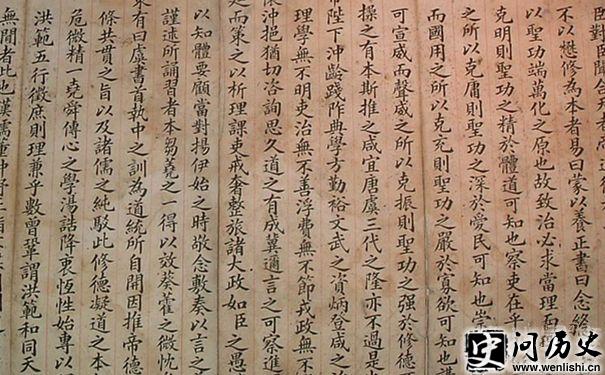 臣對臣聞合天者
不以懋修為本者易曰蒙以養正書曰念終
以聖功端萬化之原也故致治必求當理
克明則聖功之精於體道可知也察吏在乎
之對所以克庸則聖功之深於愛民可知也崇
而國用之所以克充則聖功之嚴於寡欲可知也
可宣威而聲威之所以克振則聖功之强於修德
操之有本斯推之咸宜唐虞三代之隆亦不過是
帝陛下沖齡踐阼典學方勤裕文武之資炳登咸之
理學無不明吏治無不善浮費無不節戎政無不
懷沖挹猶切咨詢思久道之有成冀邇言之可察進
而策之以析理課吏戒奢整旅諸大政如臣之愚
以知體要顧當對揚伊始之時敬念敷奏以言之
謹述所誦習者本芻蕘之一得以放葵藿之微忱
來有曰虞書首執中之訓為道統所自開因推帝德
條共貫之旨以及諸儒之純駁此修德凝道之本
危微精一堯舜傳心之學湯誥降衷恆性始專以
洪範五行徵庶則理兼乎數曾鞏謂洪範和同天
無聞者此也漢儒董仲舒
问历史
www.wenlishi.cn